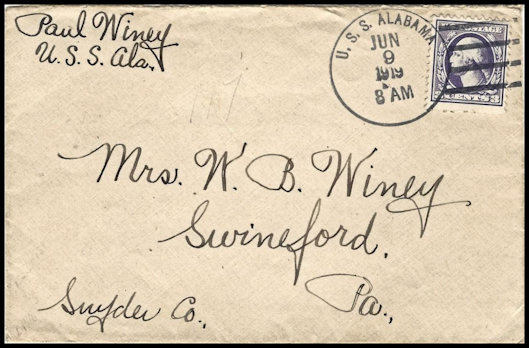 Paul Winey
U.S.S. Ala.
U.S.S. ALABAMA
JUN
9
1919
8 AM
Mrs. W. B. Winey
Swineford.
Pa.,
Snyder Co.,